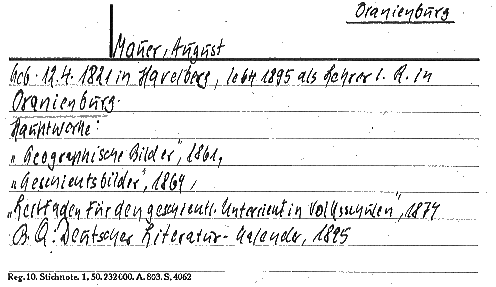 Oranienburg
Mauer, August
Geb. 12.4. 1821 in Havelberg, lebt 1895 als Lehrer i. R. in
Oranienburg.
Hauptwerke:
"Geographische Bilder", 1861,
"Geschichtsbilder", 1864,
"Leitfaden für den geschichtl. Unterricht in Volksschulen", 1874
B. Q.: Deutscher Literatur-Kalender, 1895
Reg. 10. Stichnote. 1, 50. 232000. A. 803. S. 4062